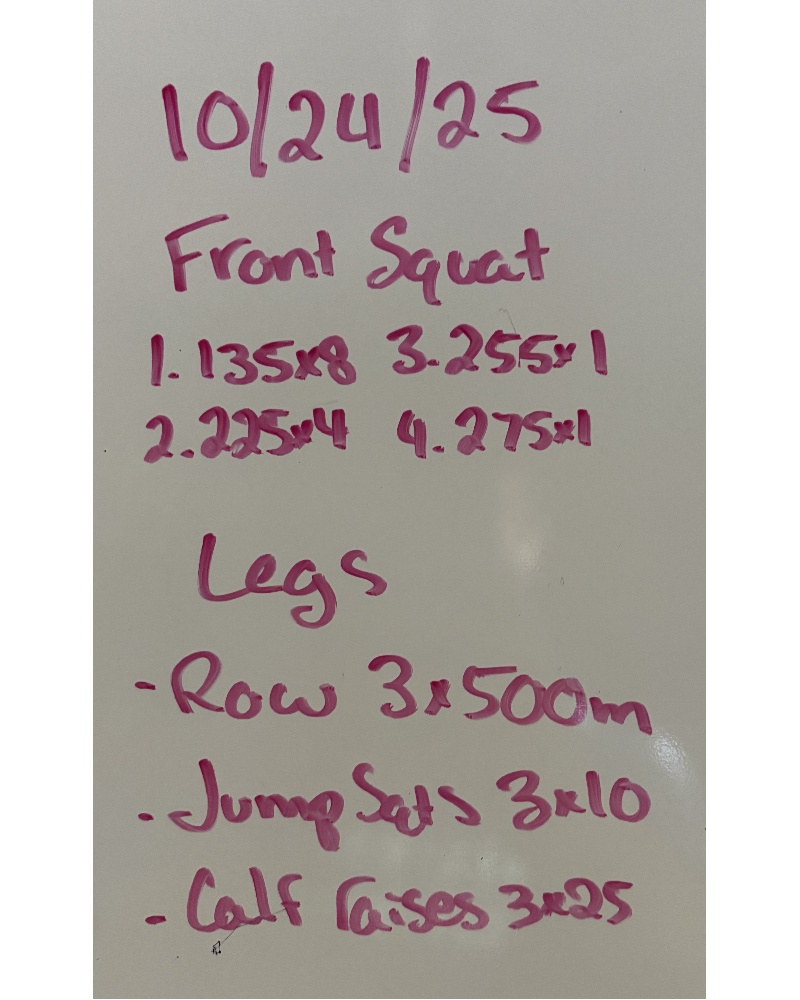 10/24/25
Front Squat
1. 135x8 3. 255x1
2. 225x4 4. 275x1
Legs
- Row 3x500m
- Jump Sqts 3x10
- Calf raises 3x25